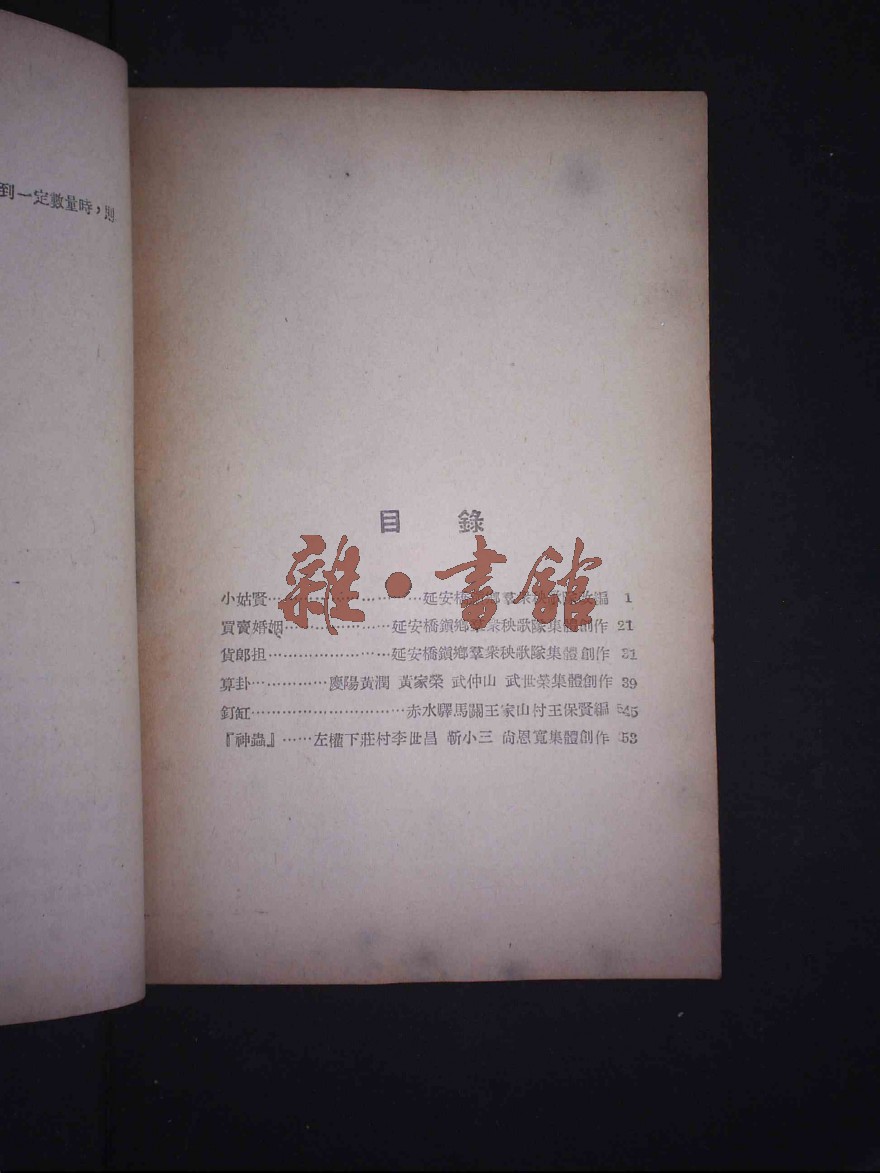 到一定數量時，則
目　錄
小姑賢……………………延安橋鎮鄉羣衆秧歌隊改編 1
買賣婚姻………………延安橋鎮鄉羣衆秧歌隊集體創作 21
貨郎担……………………延安橋鎮鄉羣衆秧歌隊集體創作 31
算卦…………慶陽黃潤 黃家榮 武仲山 武世榮集體創作 39
釘缸…………………………赤水驛馬關王家山村王保賢編 45
『神蟲』……左權下莊村李世昌 靳小三 尚恩寬集體創作 53
雜·書館